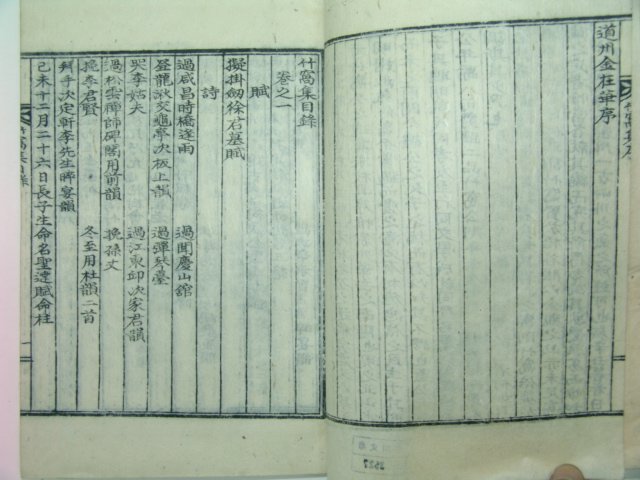 道州金在華序
竹窩集目錄
卷之一
賦
擬掛劒徐君墓賦
詩
過咸昌時橋逢雨 過聞慶山舘
登龍湫交龜亭次板上韻 過彈琴臺
哭李姑夫 過江東邱次家君韻
過松雲禪師碑閣用前韻 挽孫丈
挽李君賢 冬至用杜韻二首
拜手次定軒李先生晬宴韻
己未十二月二十六日長子生命名聖達賦侖柱
竹窩集目錄
一